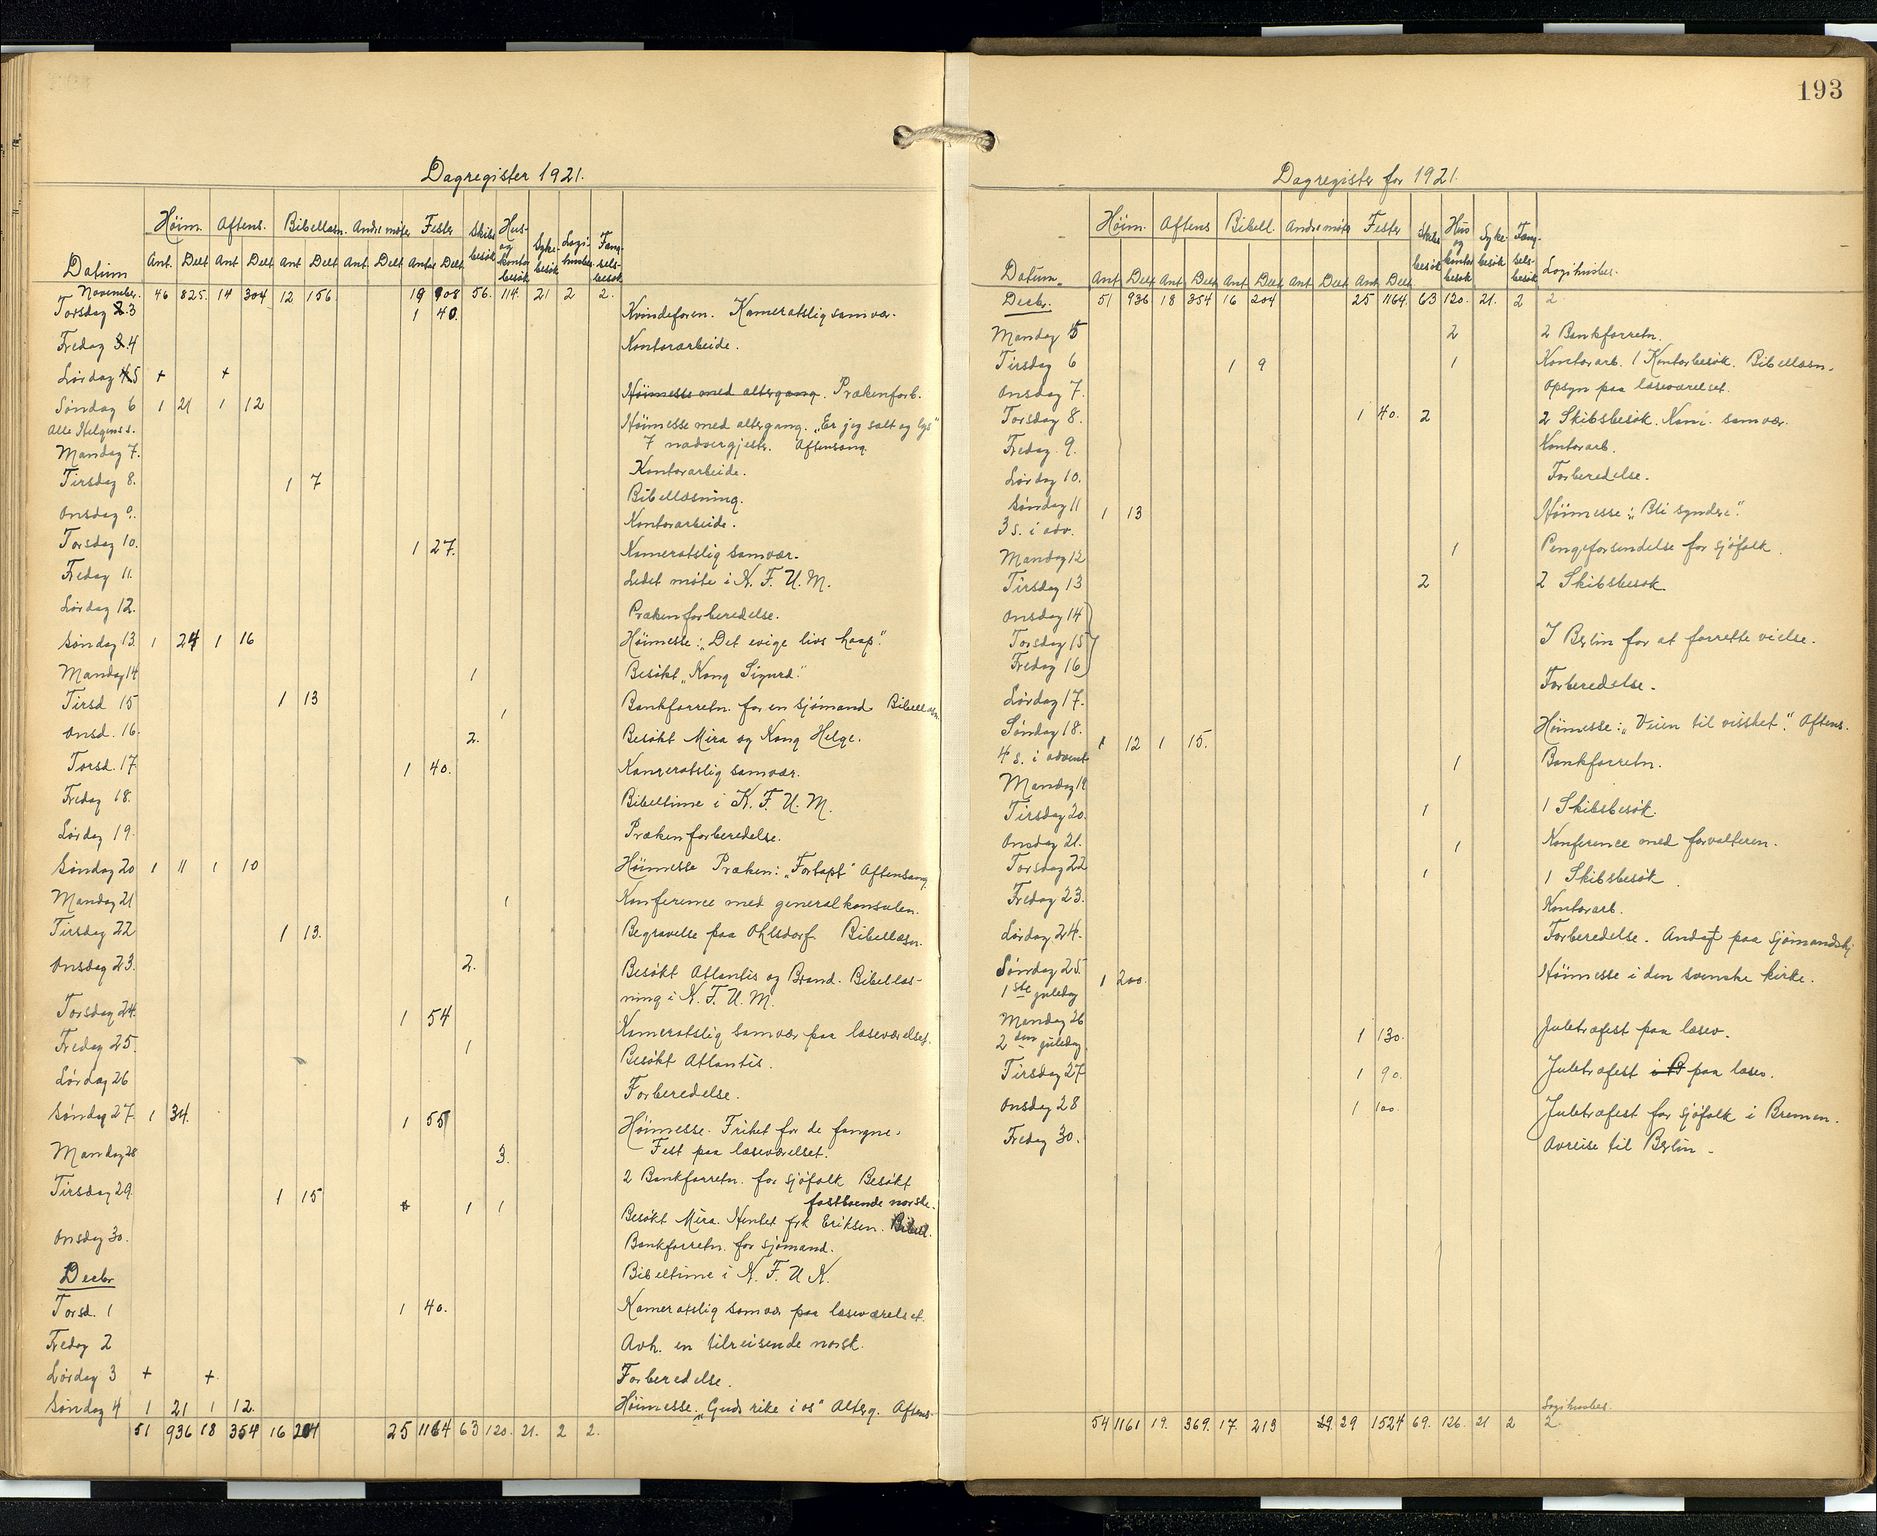 Dagregister 1921.
Datum Høim. Aftens. Bibellæsn. Andre møter Fester Skibsbesøk Hus- og kontorbesøk Sykebesøk Logihusbes. Fængselsbesøk
Ant. Delt Ant Delt Ant Delt Ant. Delt Antal Delt.
November. 46 825. 14 304 12 156. 19 908 56. 114. 21 2 2.
Torsdag 3 1 40. Kvindeforen. Kameratslig samvær.
Fredag 4 Kontorarbeide.
Lørdag 5 + + Høimesse med altergang. Prækenforb.
Søndag 6 1 21 1 12 Høimesse med altergang. „Er jeg salt og lys"
Alle Helgens s. 7 nadvergjester. Aftensang.
Mandag 7. Kontorarbeide.
Tirsdag 8. 1 7 Bibellæsning.
Onsdag 9. Kontorarbeide.
Torsdag 10. 1 27. Kameratslig samvær.
Fredag 11. Ledet møte i K. F. U. M.
Lørdag 12. Prækenforberedelse.
Søndag 13. 1 24 1 16 Høimesse: „Det evige livs haap".
Mandag 14 1 Besøkt „Kong Sigurd".
Tirsd 15 1 13 1 Bankforretn. for en sjømand Bibellæsn.
Onsd. 16. 2. Besøkt Mira og Kong Helge.
Torsd. 17 1 40. Kameratslig samvær.
Fredag 18. Bibeltime i K. F. U. M.
Lørdag 19. Prækenforberedelse.
Søndag 20 1 11 1 10 Høimesse Præken: „Fortapt" Aftensang
Mandag 21 1 Konference med generalkonsulen.
Tirsdag 22 1 13. Begravelse paa Ohlsdorf Bibellæsn.
Onsdag 23. 2. Besøkt Atlantis og Brand. Bibellæs-
ning i K. F. U. M.
Torsdag 24. 1 54 Kameratslig samvær paa læseværelset.
Fredag 25. 1 Besøkt Atlantis.
Lørdag 26 Forberedelse.
Søndag 27. 1 34. 1 55 Høimesse. Frihet for de fangne.
Fest paa læseværelset.
Mandag 28 3. 2 Bankforretn. for sjøfolk Besøkt
fastboende norske.
Tirsdag 29. 1 15 1 1 Besøkt Mira. Hentet frk Eriksen. Bibell.
Onsdag 30. Bankforretn. for sjømand.
Decbr Bibeltime i K. F. U K.
Torsd. 1 1 40. Kameratslig samvær paa læseværelset.
Fredag 2 Avh. en tilreisende norsk.
Lørdag 3 + + Forberedelse.
Søndag 4 1 21 1 12. Høimesse. „Guds rike i os" Alterg. Aftens.
51 936 18 354 16 204 25 1164 63 120. 21. 2 2.
193
Dagregister for 1921.
Datum Høim. Aftens Bibell. Andre møter Fester Skibsbesøk Hus og kontorbesøk Sykebesøk Fængselsbesøk Logihusbes.
Ant Delt Ant Delt Ant Delt Ant Delt Ant Delt
Decbr. 51 936 18 354 16 204 25 1164 63 120. 21. 2 2
Mandag 5 2 2 Bankforretn.
Tirsdag 6 1 9 1 Kontorarb. 1 Kontorbesøk. Bibellæsn.
Onsdag 7. Opsyn paa læseværelset.
Torsdag 8. 1 40. 2 2 Skibsbesøk. Kam. samvær.
Fredag 9. Kontorarb.
Lørdag 10. Forberedelse.
Søndag 11 1 13 Høimesse: „Bli syndere".
3 s. i adv.
Mandag 12 1 Pengeforsendelse for sjøfolk.
Tirsdag 13 2 2 Skibsbesøk
Onsdag 14
Torsdag 15 I Berlin for at forrette vielse.
Fredag 16
Lørdag 17. Forberedelse.
Søndag 18. 1 12 1 15. Høimesse: „Veien til visshet". Aftens.
4 s. i advent
Mandag 19 1 Bankforretn.
Tirsdag 20. 1 1 Skibsbesøk.
Onsdag 21. 1 Konference med forvalteren.
Torsdag 22 1 1 Skibsbesøk.
Fredag 23. Kontorarb.
Lørdag 24. Forberedelse. Andagt paa sjømandshj
Søndag 25. 1 200. Høimesse i den svenske kirke.
1ste juledag
Mandag 26 1 130. Juletræfest paa læsev.
2den juledag.
Tirsdag 27 1 90. Juletræfest paa læsev.
Onsdag 28 1 100. Juletræfest for sjøfolk i Bremen.
Fredag 30. Avreise til Berlin.
Logihusbes.
54 1161 19. 369. 17. 213 29 29 1524 69. 126. 21 2 2